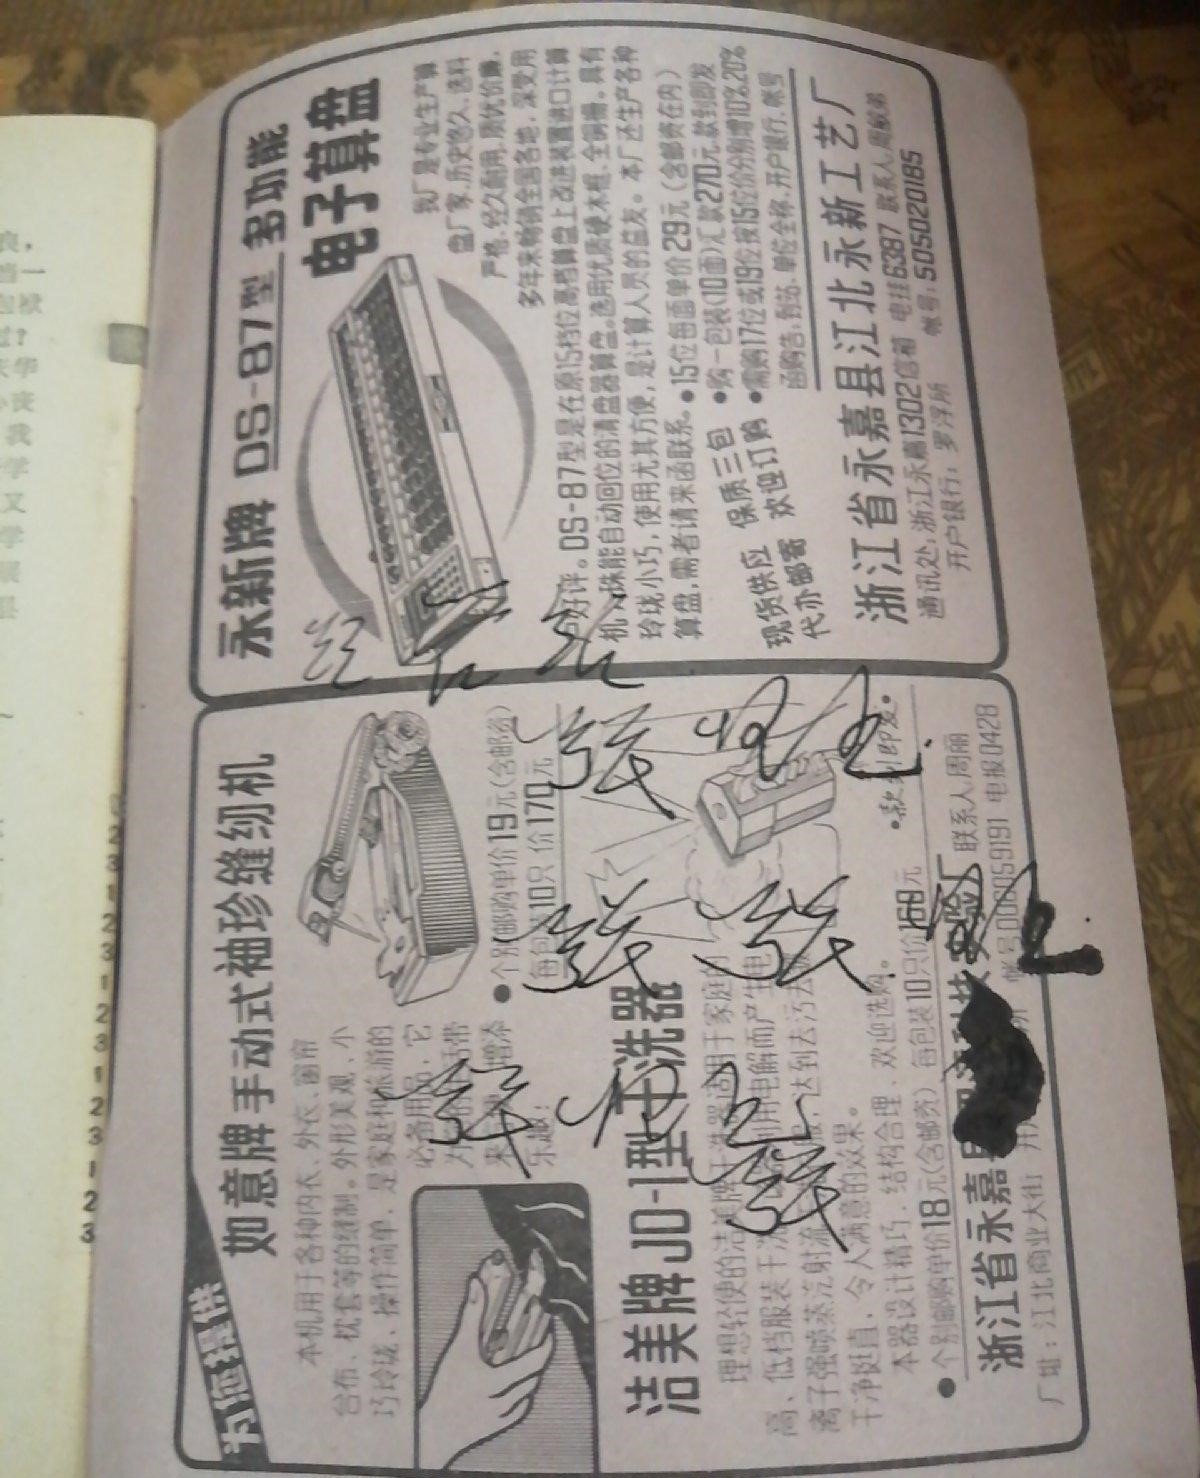 为您提供
如意牌手动式袖珍缝纫机
本机用于各种内衣、外衣、窗帘
台布、枕套等的缝制。外形美观、小
巧玲珑、操作简单，是家庭和旅游的
必备用品，它
为您的生活带
来 增添
乐趣！
●个别邮购单价19元(含邮资)
每包装10只价170元
洁美牌JD-1型干洗器
理想轻便的洁美牌干洗器适用于家庭的
高、低档服装干洗，利用电解而产生电
离子强喷蒸汽射流 达到去污去
干净挺直，令人满意的效果。
本器设计精巧、结构合理、欢迎选购。
●个别邮购单价18元(含邮资)每包装10只价168元
•款到即发•
浙江省永嘉县
厂址：江北商业大街
联系人周丽
电报0428
永新牌DS-87型多功能
电子算盘
我厂是专业生产算
盘厂家，历史悠久、选料
严格，经久耐用，质优价廉，
多年来畅销全国各地，深受用
户好评。DS-87型是在原15档位高档算盘上改进装置进口计算
机、珠能自动回位的清盘器算盘。选用优质硬木框，全铜栅。具有
玲珑小巧，使用尤其方便，是计算人员的益友。本厂还生产各种
算盘，需者请来函联系。●15位每面单价29元(含邮资在内)
现货供应 保质三包 ●购一包装(10面)汇款270元，款到即发
代办邮寄 欢迎订购 ●需购17位或19位按15位价分别增10%.20%
函购告，到站、单位全称，开户银行、帐号
浙江省永嘉县江北永新工艺厂
通讯处：浙江永嘉1302信箱 电挂6387 联系人
开户银行：罗浮所 帐号：505020185
张
张 张